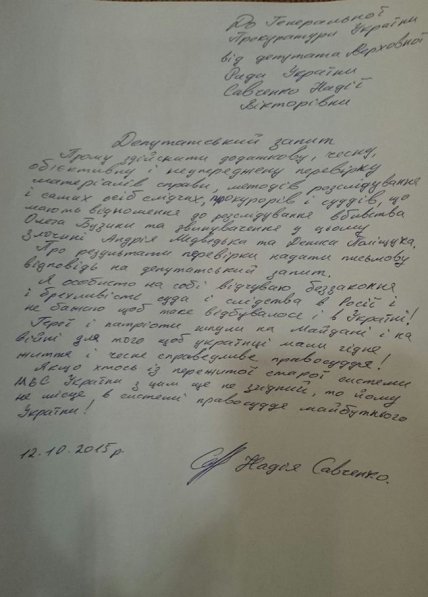 До Генеральної
Прокуратури України
від депутата Верховної
Ради України
Савченко Надії
Вікторівни
Депутатський запит
Прошу здійснити додаткову, чесну,
об'єктивну і неупереджену перевірку
матеріалів справи, методів розслідування
і самих осіб слідчих, прокурорів і суддів, що
мають відношення до розслідування вбивства
Олеся Бузини та звинувачення у цьому
злочині Андрія Медведька та Дениса Поліщука.
Про результати перевірки надати письмову
відповідь на депутатський запит.
Я особисто на собі відчуваю беззаконня
і брехливість суда і слідства в Росії і
не бажаю щоб таке відбувалося і в Україні!
Герої і патріоти йшли на Майдані і на
війні для того щоб українці мали гідне
життя і чесне справедливе правосуддя!
Якщо хтось із пережитої старої системи
МВС України з цим ще не згідний, то йому
не місце в системі правосуддя майбутнього
України!
12.10.2015р.
Надія Савченко.